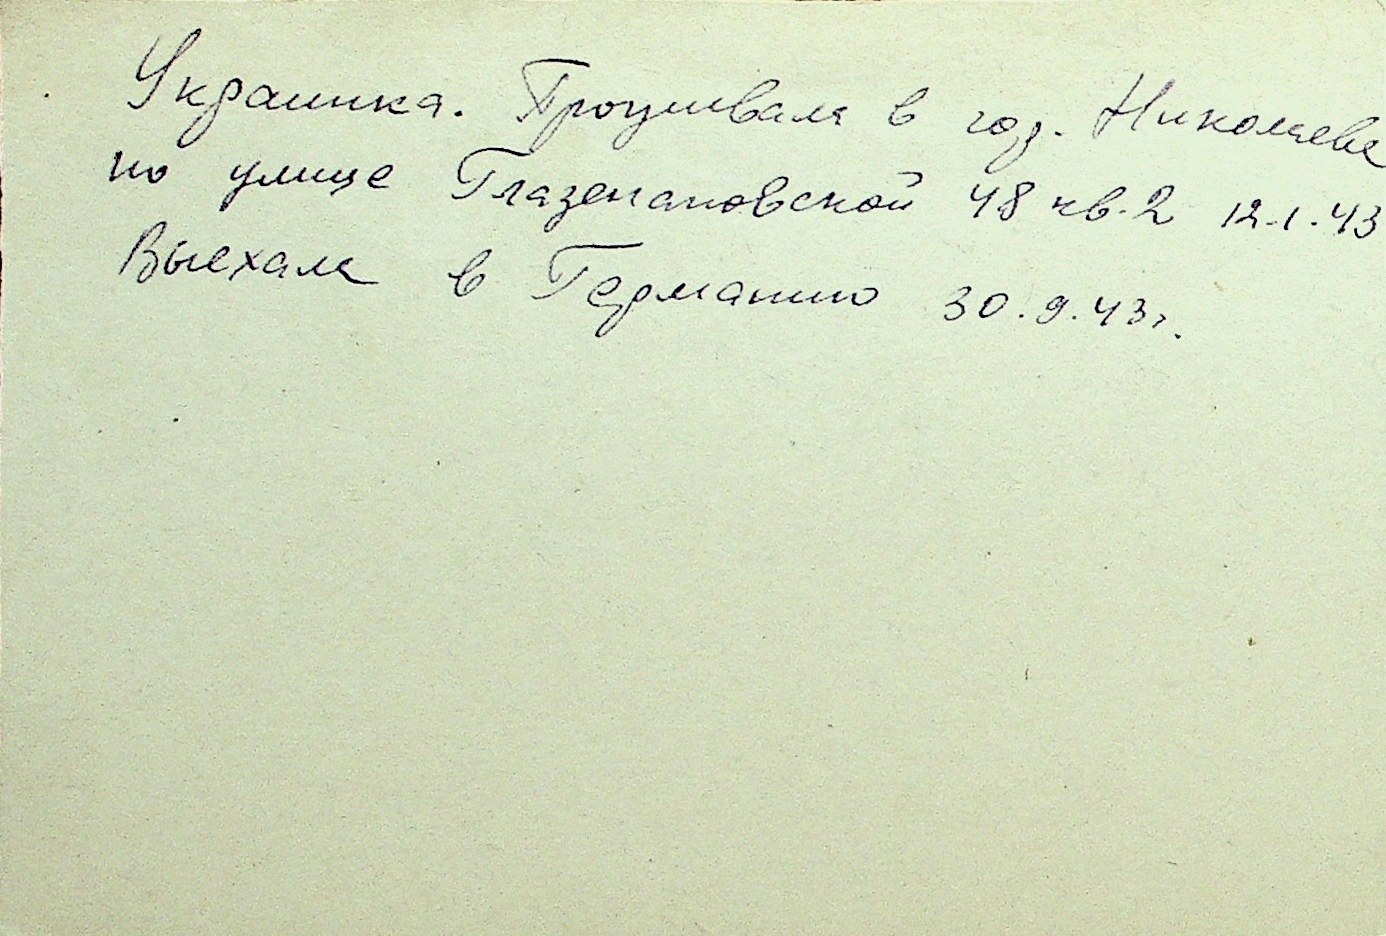 Украинка. Проживала в гор. Николаеве
по улице Глазенаповской 48 кв. 2 12.1.43
Выехала в Германию 30.9.43г.